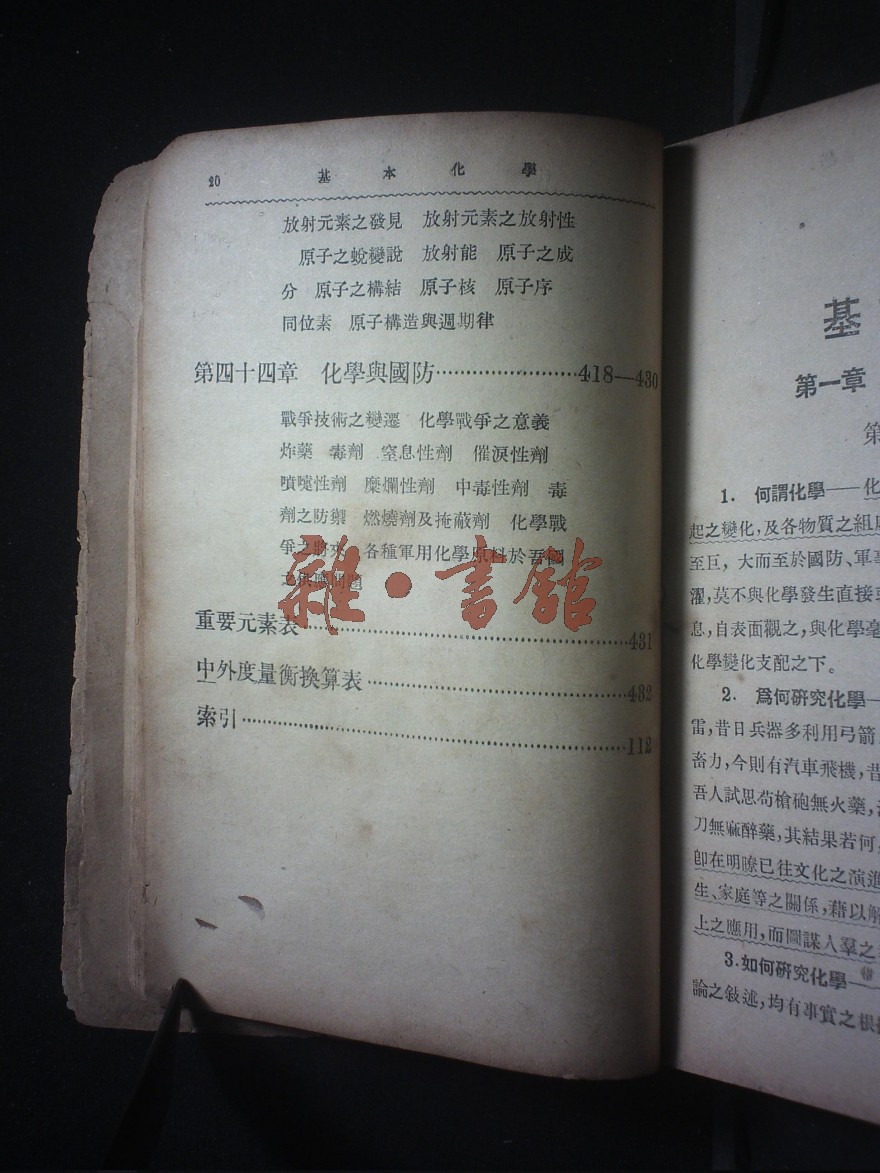 20 基本化學
放射元素之發見 放射元素之放射性
原子之蛻變說 放射能 原子之成
分 原子之構結 原子核 原子序
同位素 原子構造與週期律
第四十四章 化學與國防……………………418—430
戰爭技術之變遷 化學戰爭之意義
炸藥 毒劑 窒息性劑 催淚性劑
噴嚏性劑 糜爛性劑 中毒性劑 毒
劑之防禦 燃燒劑及掩蔽劑 化學戰
爭之將來 各種軍用化學原料於吾國
之供應問題
重要元素表……………………431
中外度量衡換算表……………………432
索引……………………112
雜·書館
基
第一章
第
1. 何謂化學——化
起之變化,及各物質之組成
至巨,大而至於國防、軍事
濯,莫不與化學發生直接或
息,自表面觀之,與化學毫
化學變化支配之下。
2. 爲何研究化學—
雷,昔日兵器多利用弓箭,
畜力,今則有汽車飛機,昔
吾人試思苟槍砲無火藥,
刀無麻醉藥,其結果若何,
卽在明瞭已往文化之演進
生、家庭等之關係,藉以解
上之應用,而圖謀人羣之
3. 如何研究化學—
論之敍述,均有事實之根據